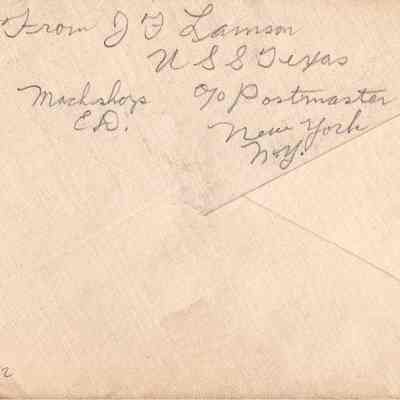 From J F Lamson
U S S Texas
Mach. shops c/o Postmaster
E.D. New York
N.Y.
2